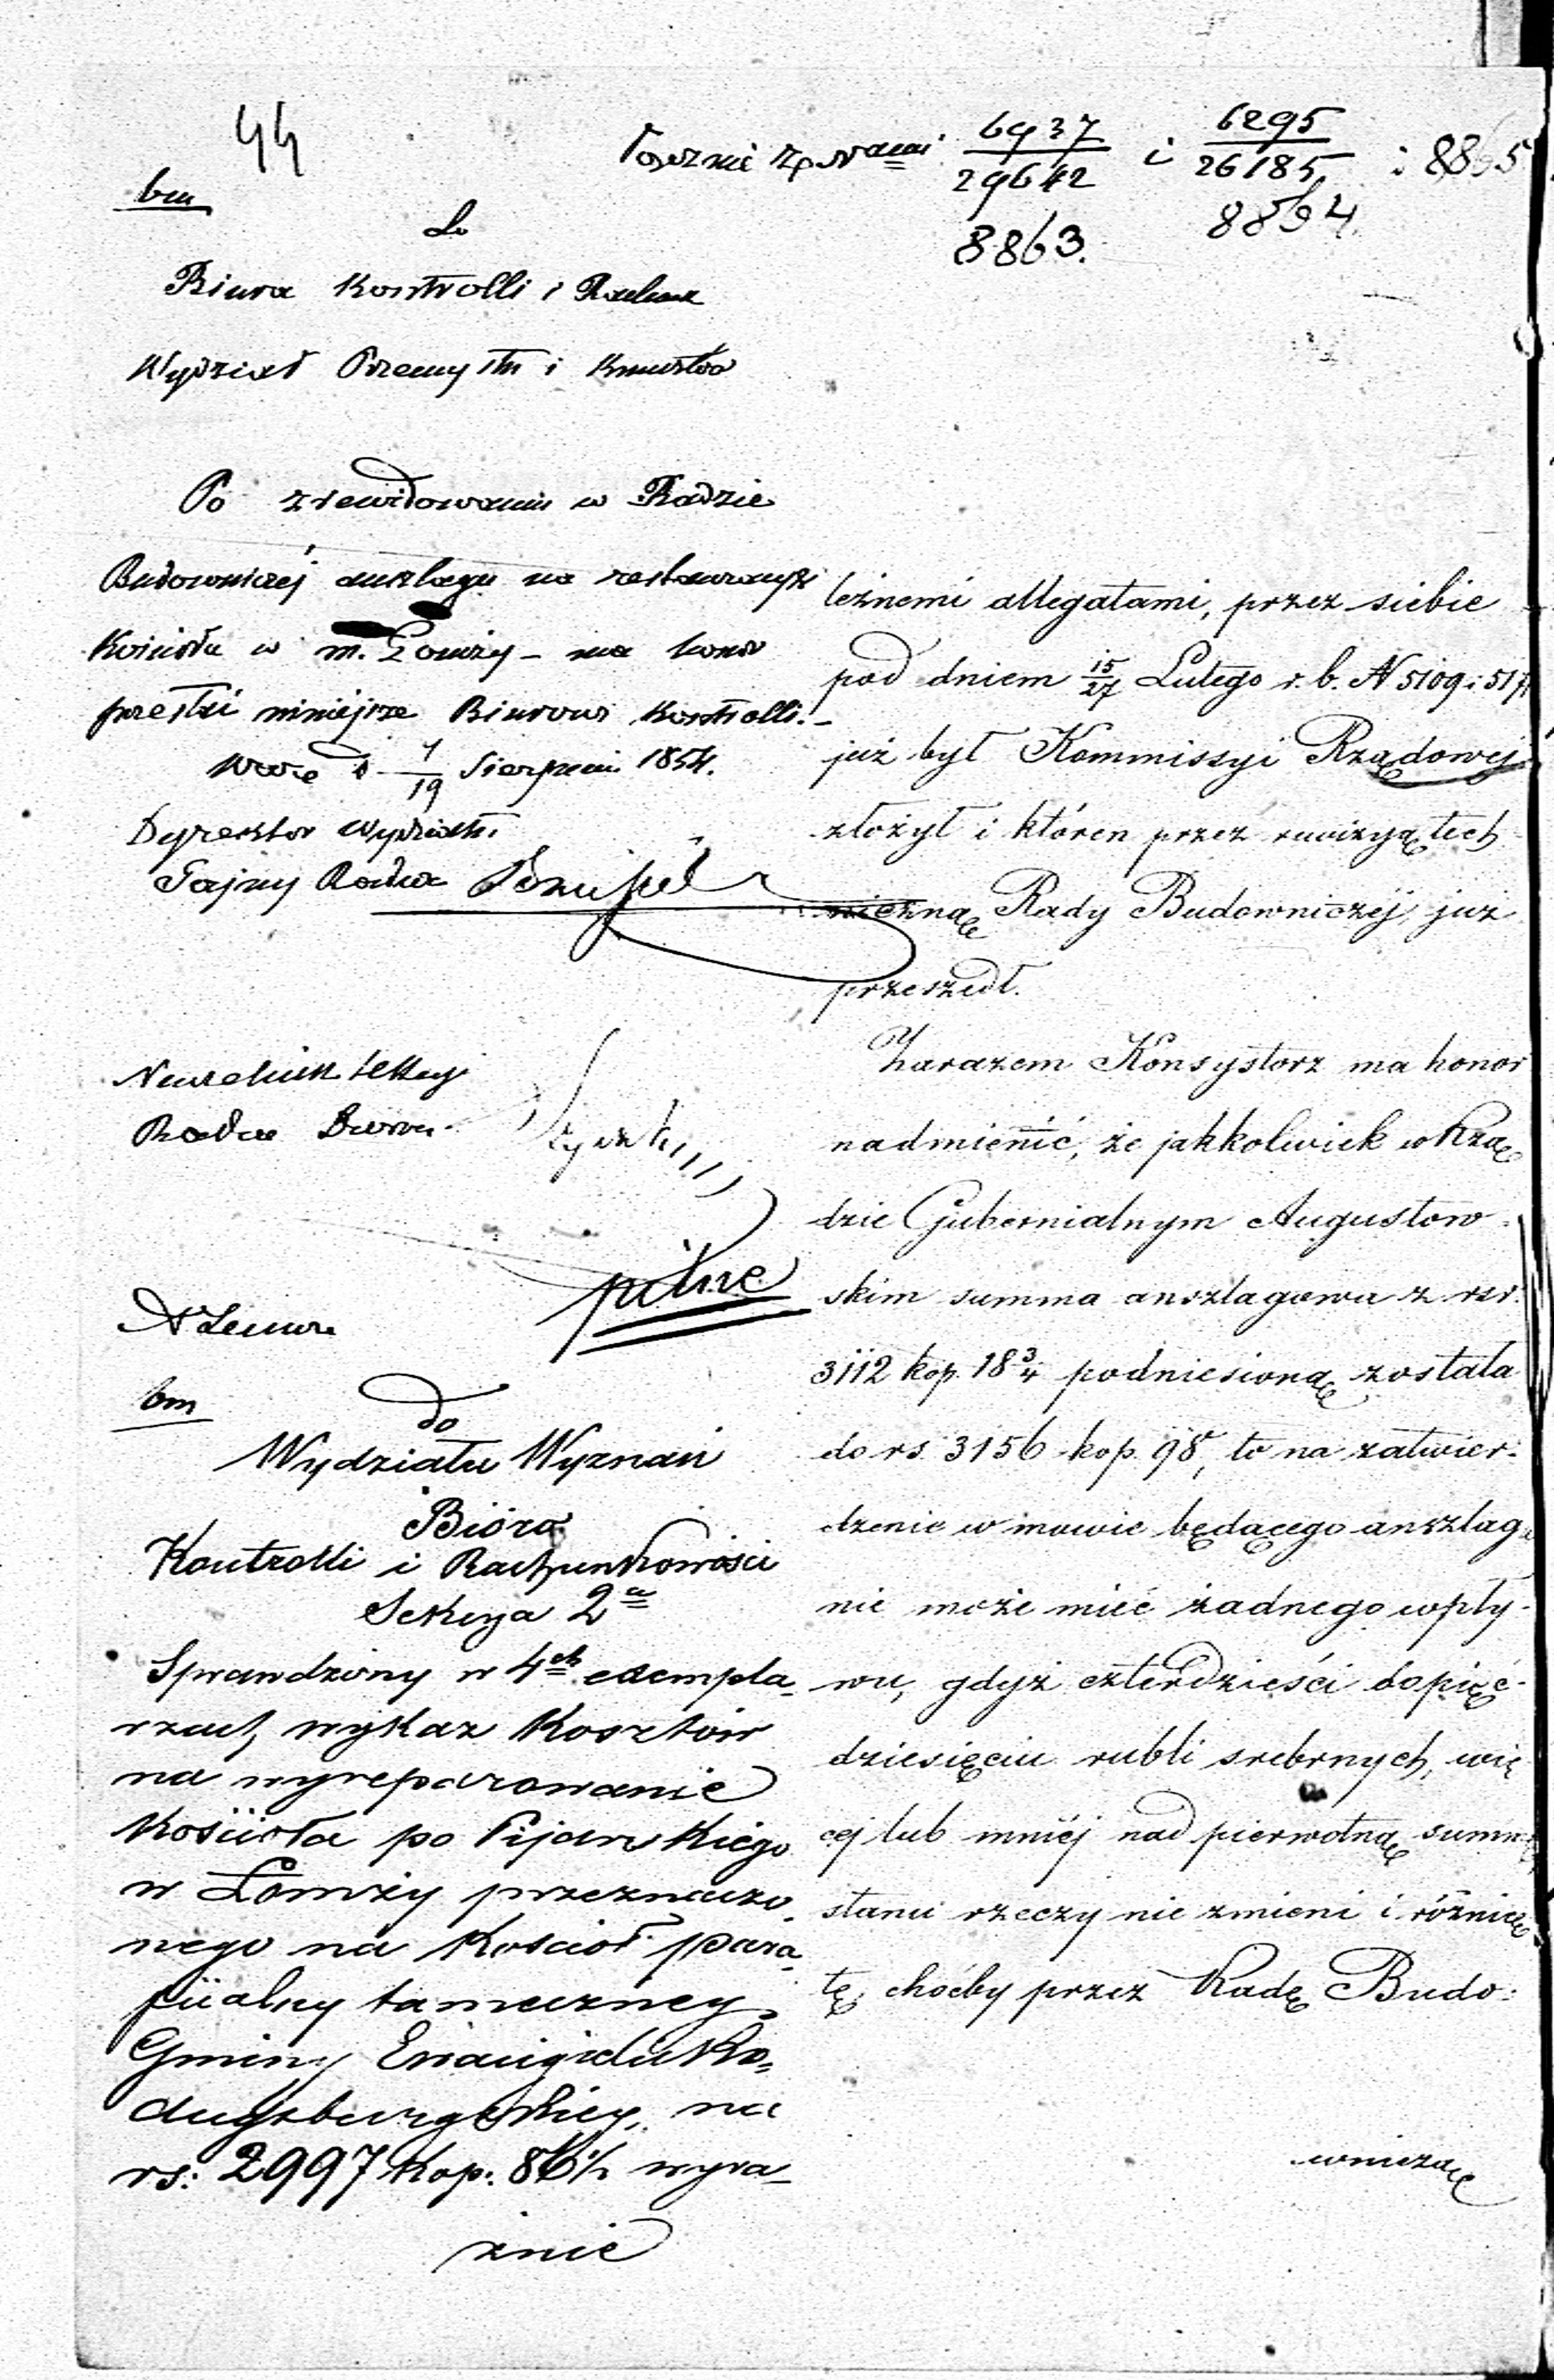 44
Łącznie z 6937/29642 i 6295/26185 i 8865
8863. 8864.
bm
Do
Biura Kontrolli i Rachun
Wydział Przemysłu i Kunsztów
Po zrewidowaniu w Radzie
Budowniczéj anszlagu na restauracyę
Kościoła w m. Łomży – ma honor
przesłać niniejsze Biurowi Kontrolli. –
w d 7/19 Sierpnia 1854.
Dyrektor Wydziału
Tajny Radca
Naczelnik Sekcyi
Radca Dworu
pilne
bm
do
Wydziału Wyznań
Bióro
Kontrolli i Rachunkowości
Sekcya 2a
Sprawdzony w 4ch exempla
rzach, wykaz Kosztów
na wyreparowanie
Kościoła po Pijarskiego
w Łomży przeznaczo
nego na Kościoł para
fiialny tameczney
Gminy Ewangielicko
Augsburgskiey, na
rs: 2997 Kop: 86½ wyra
żnie
leżnemi allegatami, przez siebie
pod dniem 15/27 Lutego r. b. N 5109 i 517
już był Kommissyi Rządowej
złożył i któren przez rewizyą tech
niczną Rady Budowniczéj, już
przeszedł.
Zarazem Konsystorz ma honor
nadmienić, że jakkolwiek w Rzą
dzie Gubernialnym Augustow
skim summa anszlagowa z rsr.
3112 kop. 18 3/4 podniesioną została
do rs. 3156 kop. 98, to na zatwier
dzenie w mowie będącego anszlagu
nie może mieć żadnego wpły
wu, gdyż czterdzieści do pięć
dziesięciu rubli srebrnych, wię
cej lub mniéj nad pierwotną summę
stanu rzeczy nie zmieni i różnicę
tę, choćby przez Radę Budo:
wniczą